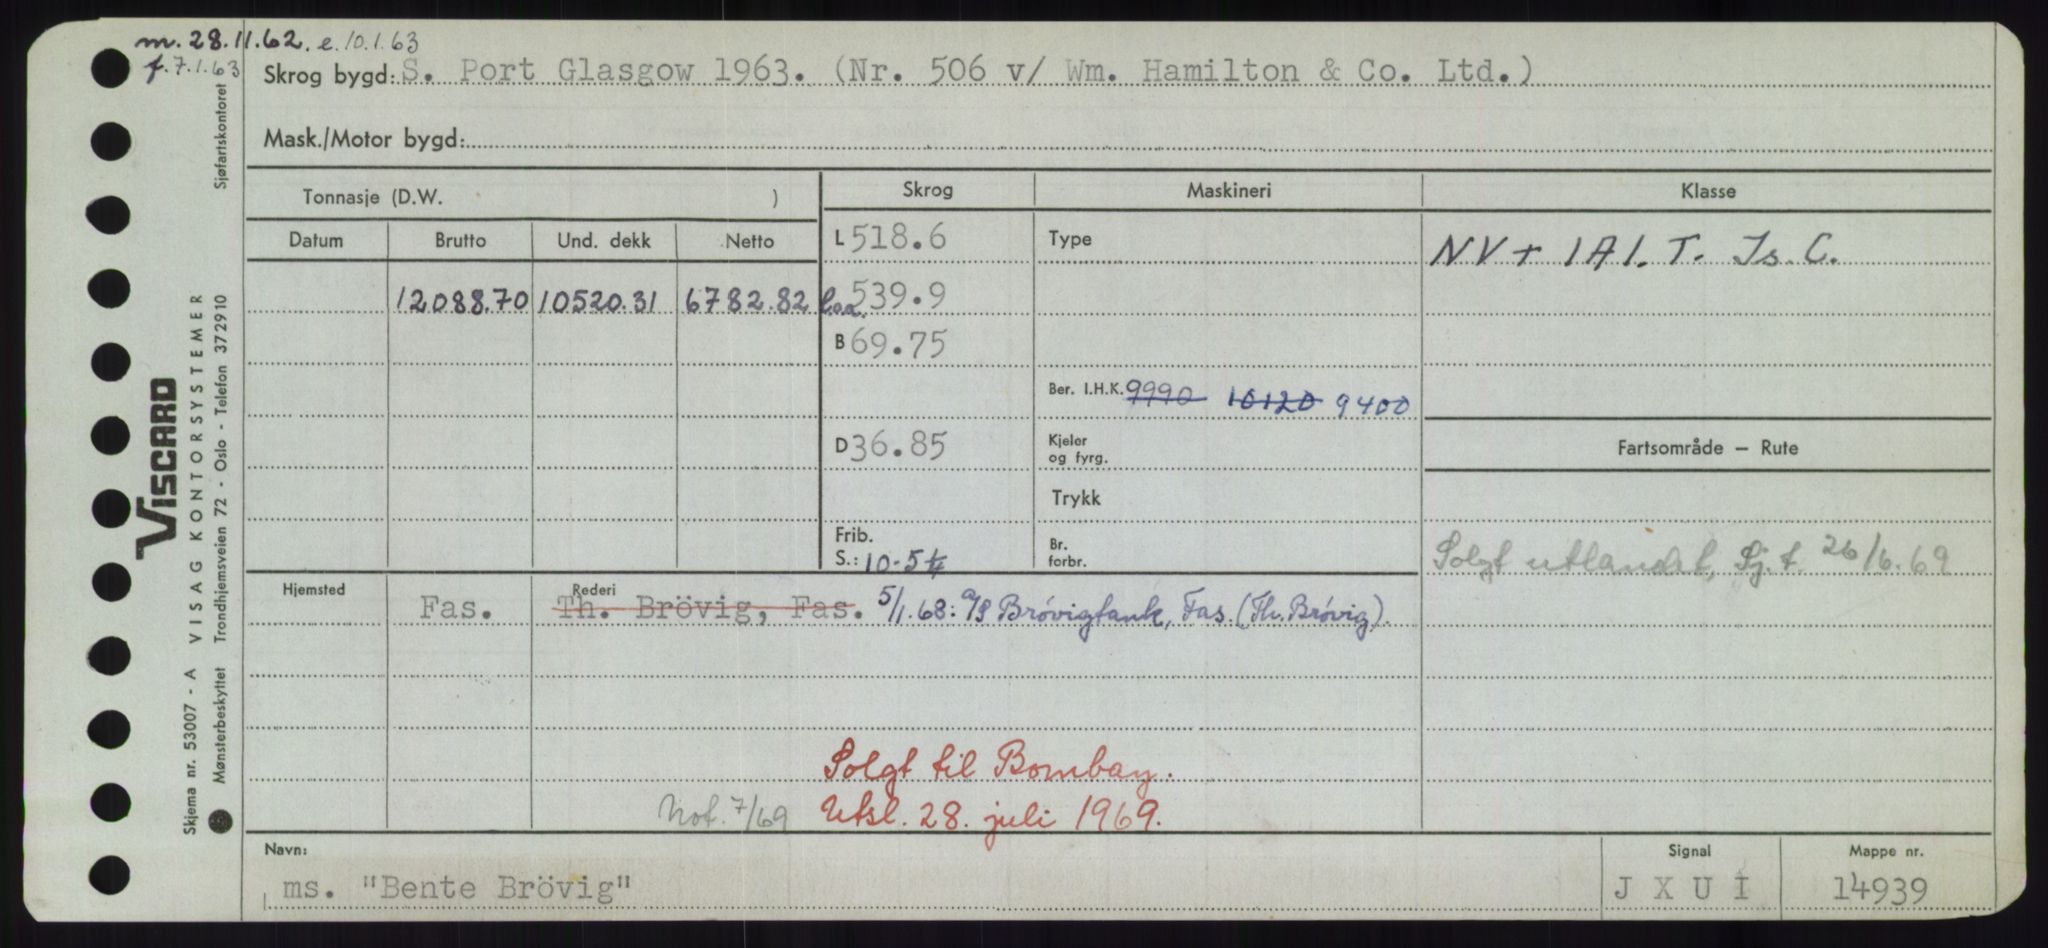 m. 28.11.62. e. 10.1.63
f. 7.1.63
Skrog bygd: S. Port Glasgow 1963. (Nr. 506 v/ Wm. Hamilton & Co. Ltd.)
Mask./Motor bygd:
Tonnasje (D.W. )
Skrog
Maskineri
Klasse
Datum
Brutto
Und. dekk
Netto
L 518.6
Type
NV + 1A1. T. Is. C.
12088.70
10520.31
6782.82
Loa. 539.9
B 69.75
Ber. I.H.K. 9990 10120 9400
D 36.85
Kjeler
og fyrg.
Fartsområde – Rute
Trykk
Frib.
S.: 10-5¼
Br.
forbr.
Solgt utlandet, Sj.t. 26/6.69
Hjemsted
Rederi
Fas.
Th. Brövig, Fas. 5/1.68: A/S Brövigtank, Fas. (Th. Brövig).
Solgt til Bombay.
Not. 7/69
Utsl. 28. juli 1969.
Navn:
Signal
Mappe nr.
ms. "Bente Brövig"
J X U I
14939
VISCARD
Skjema nr. 53007 - A VISAG KONTORSYSTEMER
Mønsterbeskyttet Trondhjemsveien 72 - Oslo - Telefon 372910
Sjøfartskontoret